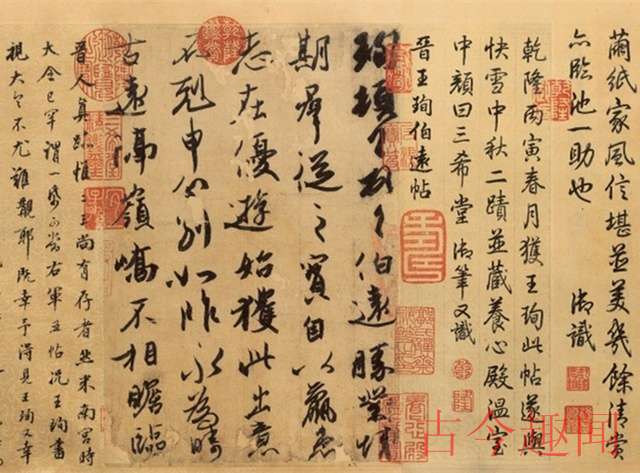 繭紙家風信堪並美幾餘清賞
亦臨池一助也 御識
乾隆丙寅春月獲王珣此帖遂與
快雪中秋二蹟並藏養心殿溫室
中顏曰三希堂 御筆又識
晉王珣伯遠帖
珣頓首頓首伯遠勝業情
期群從之寶自以羸患
志在優遊始獲此出意
不剋申分別如昨永為疇
古遠隔嶺嶠不相瞻臨
晉人真跡惟二王尚有存者然米南宮時
大令已罕謂一紙可當右軍五帖況王珣書
視大令不尤難覯耶既幸予得見王珣又幸
古今趣闻